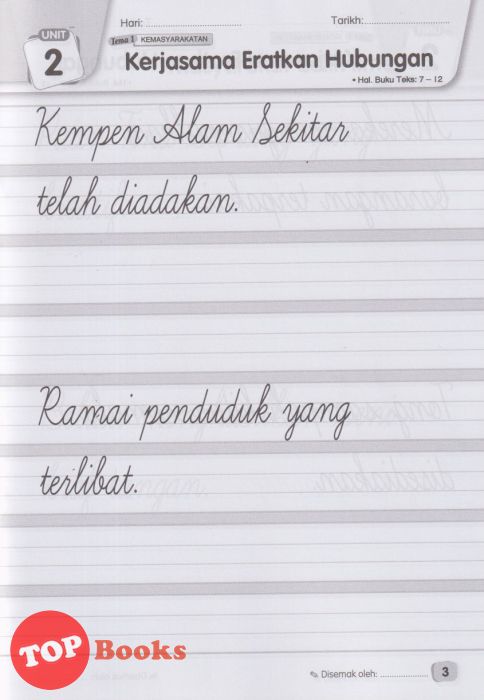 Hari: ............................
Tarikh:............................
UNIT
2
Tema 1 KEMASYARAKATAN
Kerjasama Eratkan Hubungan
• Hal. Buku Teks: 7 – 12
Kempen Alam Sekitar
telah diadakan.
Ramai penduduk yang
terlibat.
TOP Books
✎ Disemak oleh: ....................
3